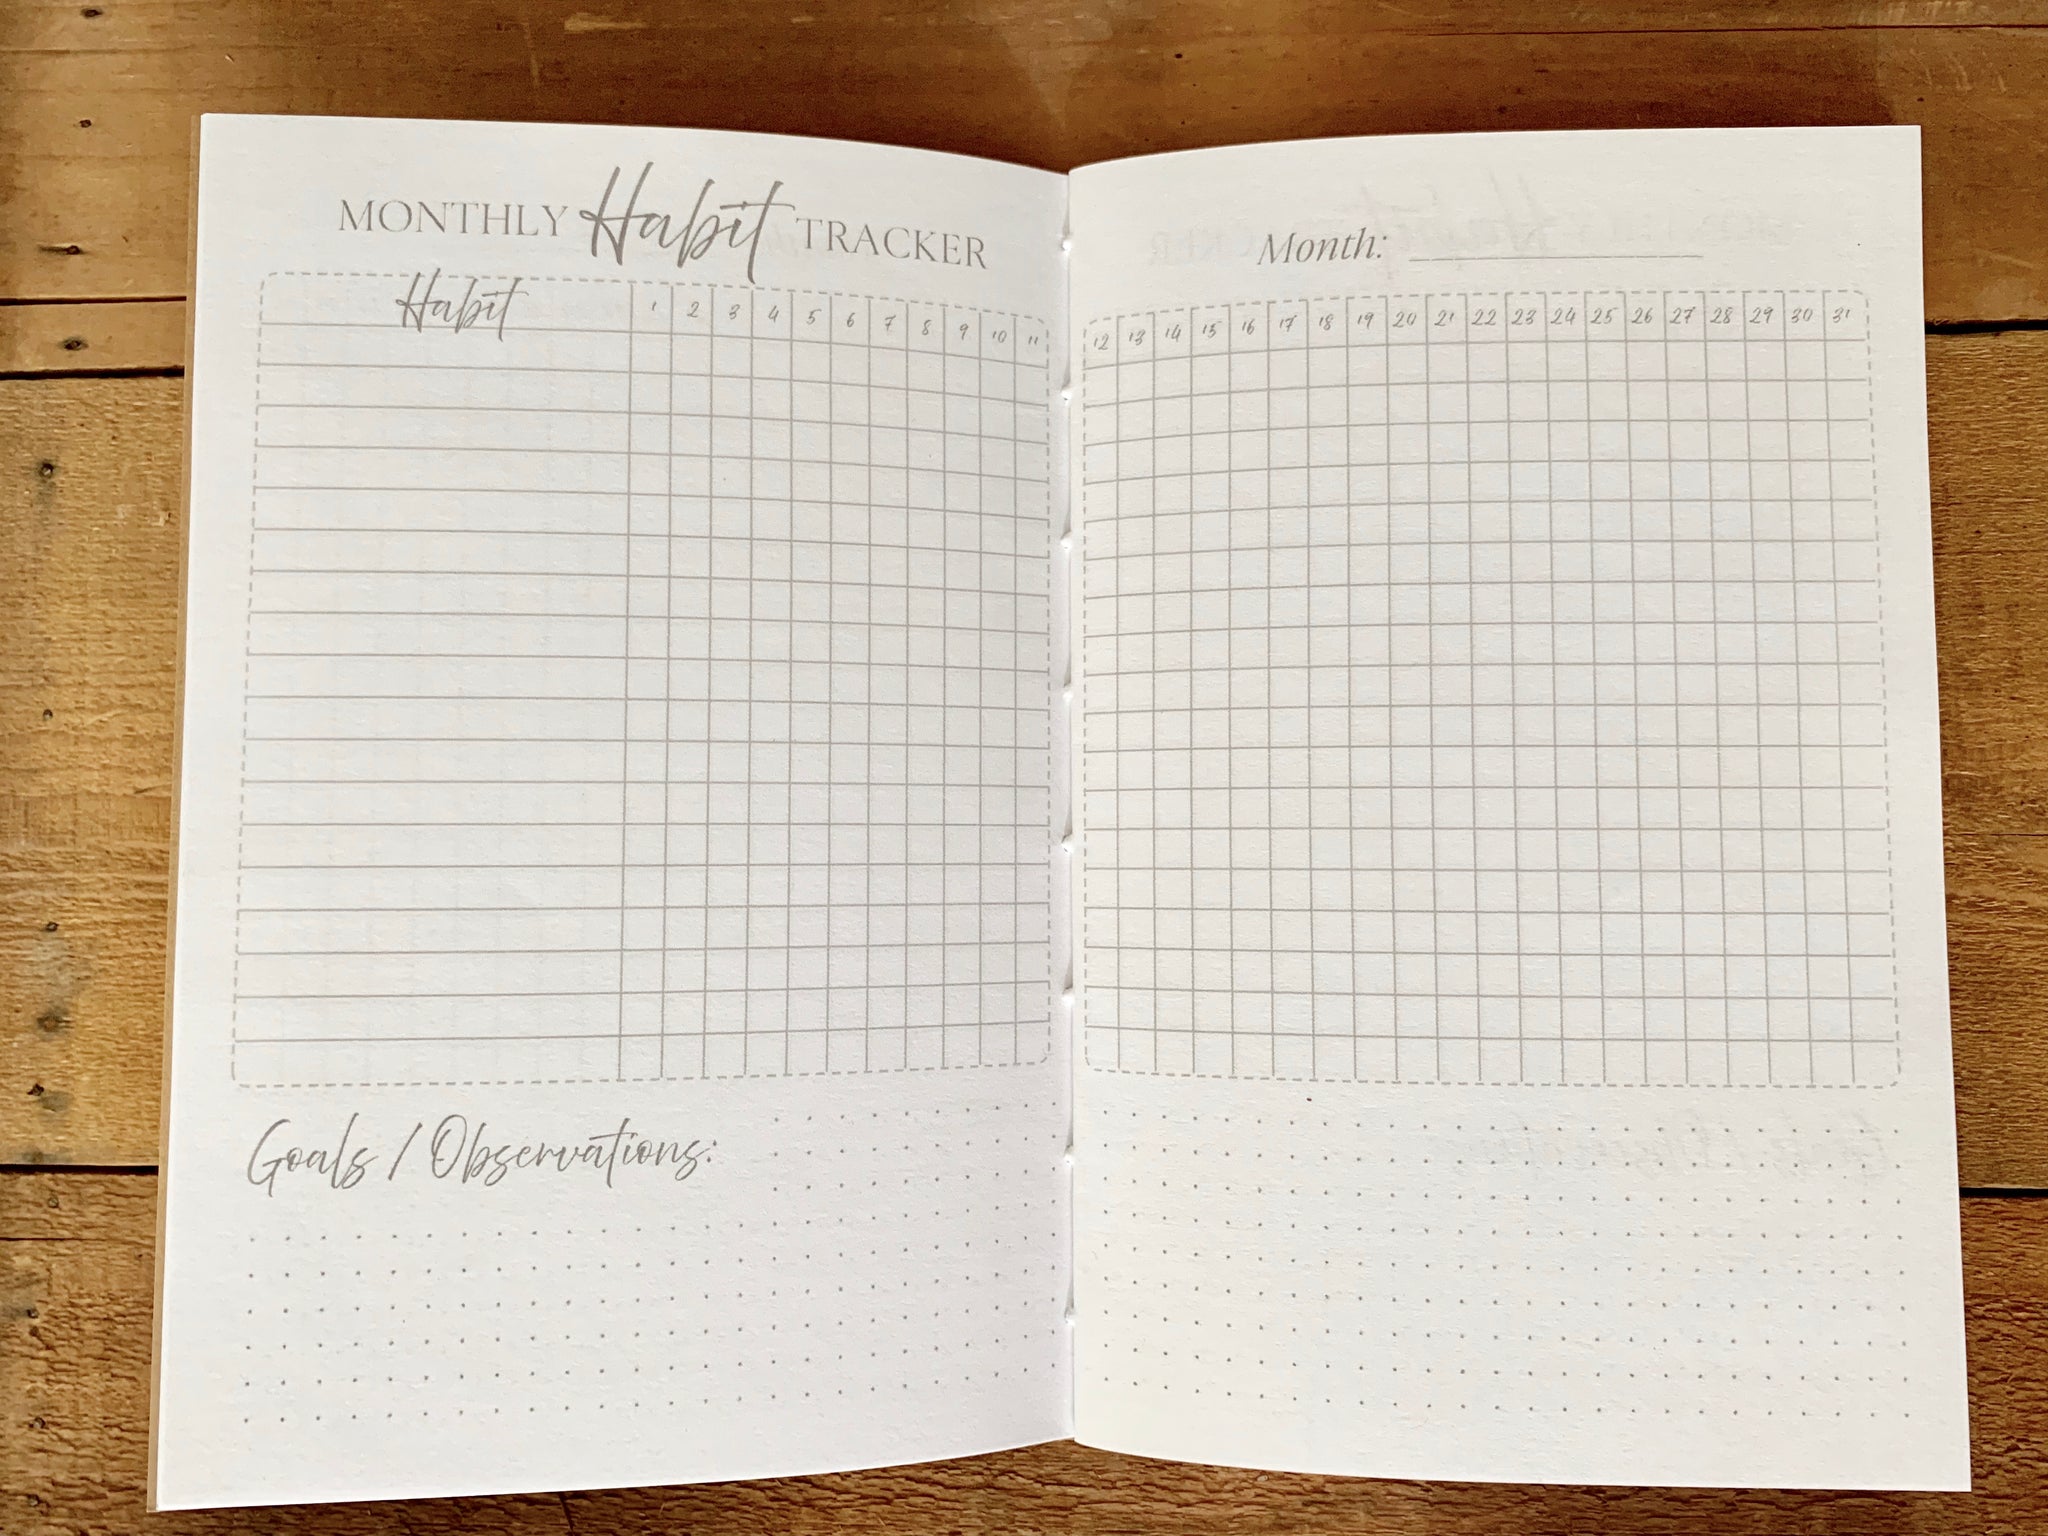 MONTHLY Habit TRACKER
Month:
Habit 1 2 3 4 5 6 7 8 9 10 11 12 13 14 15 16 17 18 19 20 21 22 23 24 25 26 27 28 29 30 31
Goals / Observations: